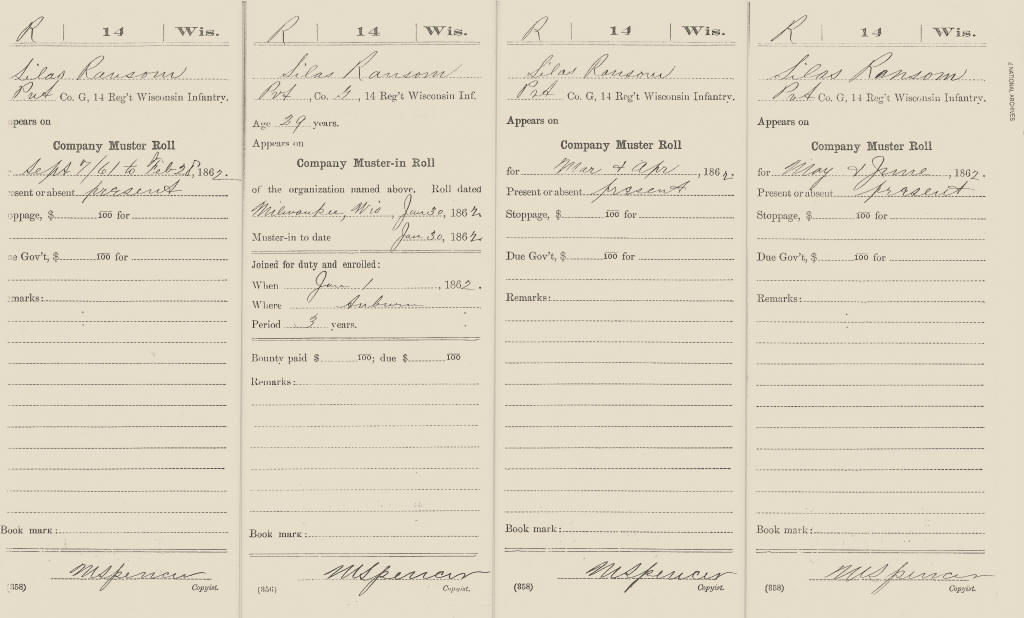 R | 14 | Wis.
Silas Ransom
Pvt Co. G, 14 Reg't Wisconsin Infantry.
ppears on
Company Muster Roll
Sept 7/61 to Feb 28, 1862.
esent or absent present
oppage, $ 100 for
e Gov't, $ 100 for
marks:
Book mark:
M Spencer
(358) Copyist.
R | 14 | Wis.
Silas Ransom
Pvt, Co. G, 14 Reg't Wisconsin Inf.
Age 29 years.
Appears on
Company Muster-in Roll
of the organization named above. Roll dated
Milwaukee, Wis, Jan 30, 1862.
Muster-in to date Jan 30, 1862.
Joined for duty and enrolled:
When Jan 1, 1862.
Where Auburn
Period 3 years.
Bounty paid $ 100; due $ 100
Remarks:
Book mark:
M Spencer
(356) Copyist.
R | 14 | Wis.
Silas Ransom
Pvt Co. G, 14 Reg't Wisconsin Infantry.
Appears on
Company Muster Roll
for Mar & Apr, 1862.
Present or absent present
Stoppage, $ 100 for
Due Gov't, $ 100 for
Remarks:
Book mark:
M Spencer
(358) Copyist.
R | 14 | Wis.
Silas Ransom
Pvt Co. G, 14 Reg't Wisconsin Infantry.
Appears on
Company Muster Roll
for May & June, 1862.
Present or absent present
Stoppage, $ 100 for
Due Gov't, $ 100 for
Remarks:
Book mark:
M Spencer
(358) Copyist.
NATIONAL ARCHIVES